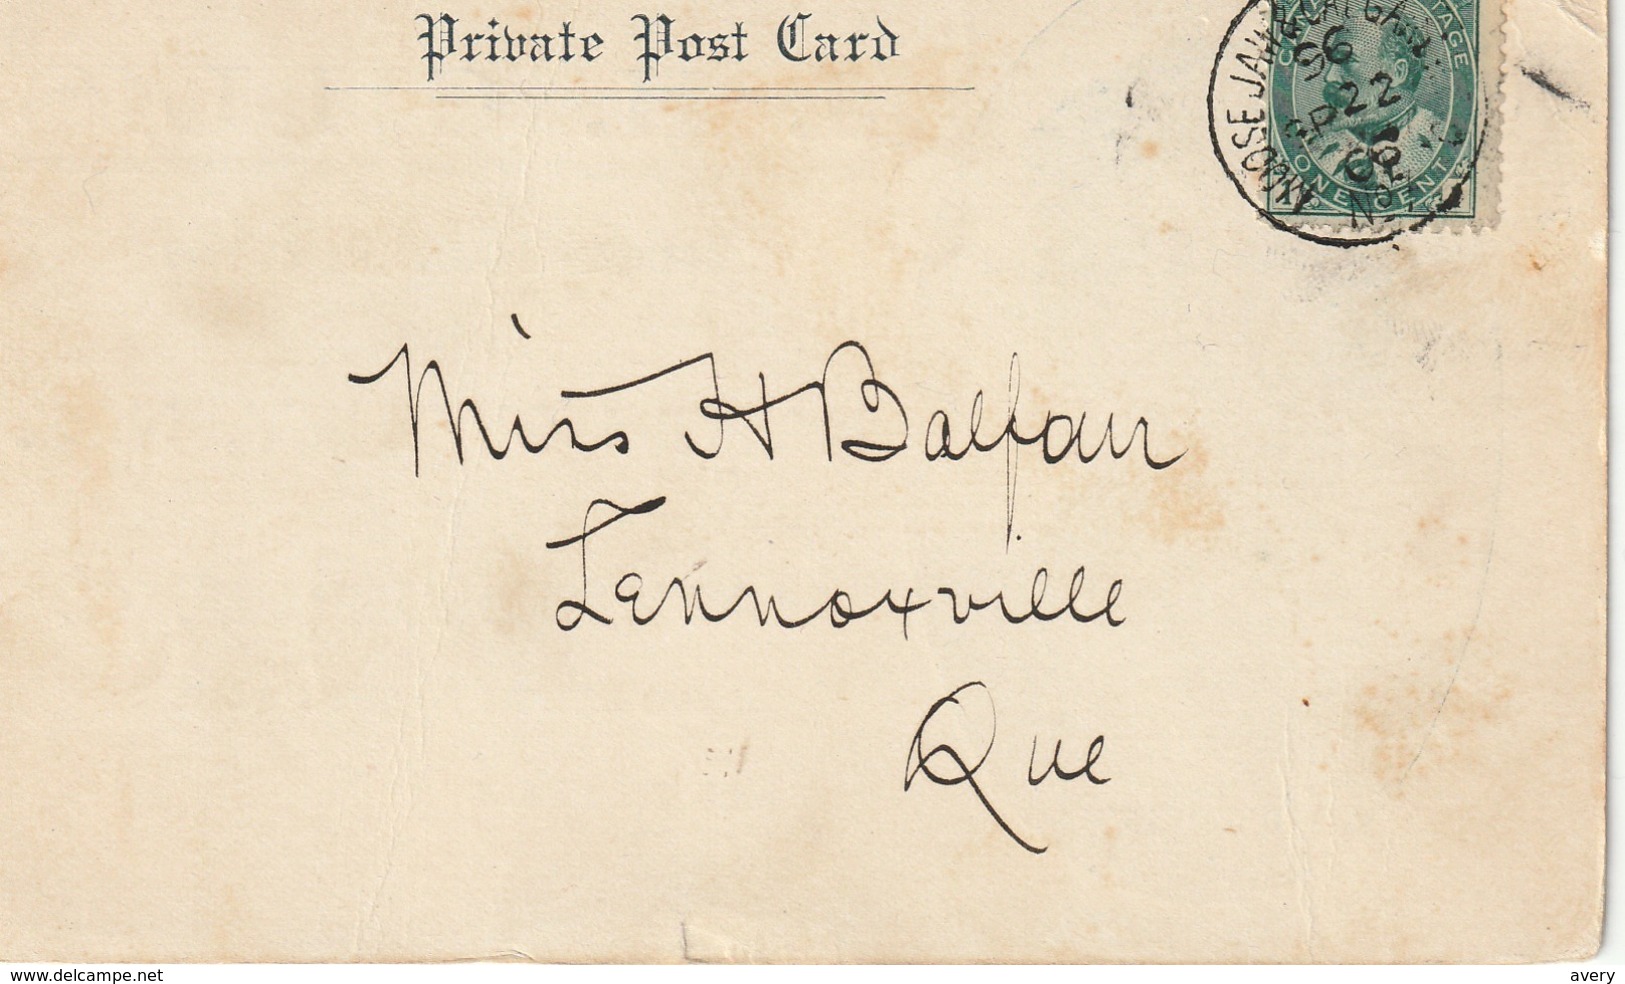 Private Post Card
MOOSE JAW & CALGARY
96
SP 22
05
No 7
TAGE
ONE CENT
Miss H Balfour
Lennoxville
Que
www.delcampe.net
avery